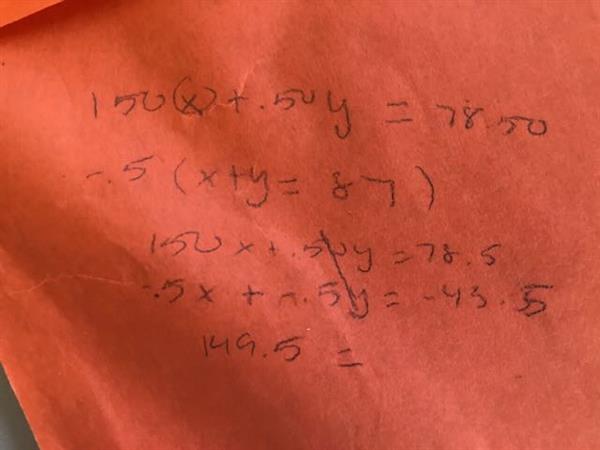 150(x) + .50y = 78.50
-.5 (x+y = 87)
150x + .50y = 78.5
-.5x + -.5y = -43.5
149.5 =